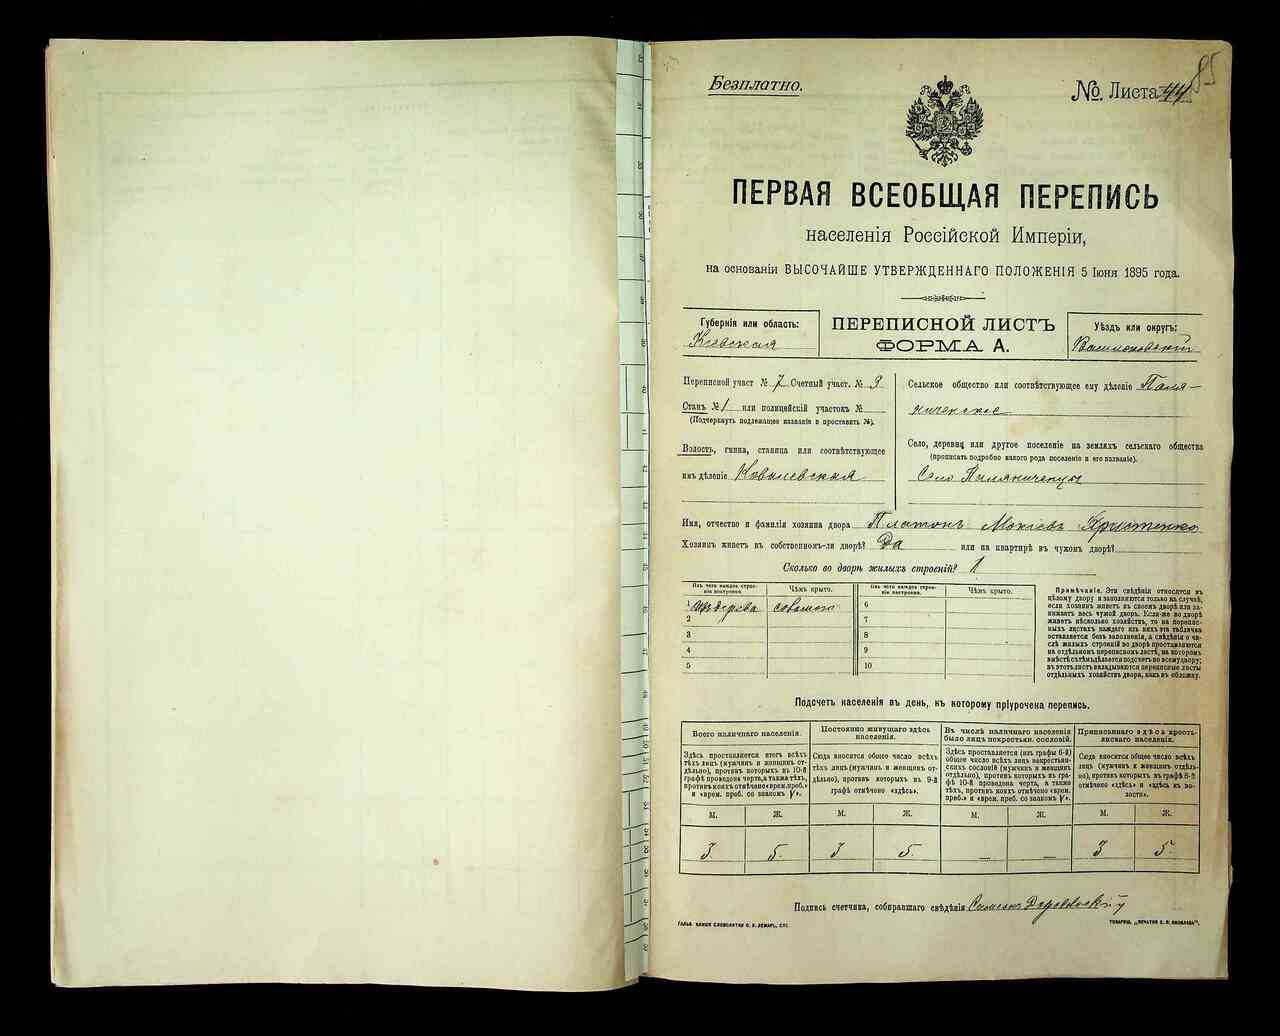 85
Безплатно.
№. Листа 44
ПЕРВАЯ ВСЕОБЩАЯ ПЕРЕПИСЬ
населенія Россійской Имперіи,
на основаніи ВЫСОЧАЙШЕ УТВЕРЖДЕННАГО ПОЛОЖЕНІЯ 5 Іюня 1895 года.
Губернія или область:
Кіевская
ПЕРЕПИСНОЙ ЛИСТЪ
ФОРМА А.
Уѣздъ или округъ:
Васильковскій
Переписной участ № 7 Счетный участ. № 9
Станъ № 1 или полицейскій участокъ №
(Подчеркнуть подлежащее названіе и проставить №).
Волость, гмина, станица или соотвѣтствующее
имъ дѣленіе Ковалевская
Сельское общество или соотвѣтствующее ему дѣленіе Пиля-
ниченское
Село, деревня или другое поселеніе на земляхъ сельскаго общества
(прописать подробно какого рода поселеніе и его названіе).
Село Пиляниченцы
Имя, отчество и фамилія хозяина двора Платонъ Мокіевъ
Хозяинъ живетъ въ собственномъ-ли дворѣ? Да или на квартирѣ въ чужомъ дворѣ?
Сколько во дворѣ жилыхъ строеній? 1
Изъ чего каждое строе-
ніе построено.
Чѣмъ крыто.
Изъ чего каждое строе-
ніе построено.
Чѣмъ крыто.
1 Изъ дерева соломою
2
3
4
5
6
7
8
9
10
Примѣчаніе. Эти свѣдѣнія относятся къ
цѣлому двору и заполняются только въ случаѣ,
если хозяинъ живетъ въ своемъ дворѣ или за-
нимаетъ весь чужой дворъ. Если-же во дворѣ
живетъ нѣсколько хозяйствъ, то на перепис-
ныхъ листахъ каждаго изъ нихъ эта табличка
оставляется безъ заполненія, а свѣдѣнія о чи-
слѣ жилыхъ строеній во дворѣ проставляются
на отдѣльномъ переписномъ листѣ, на которомъ
вмѣстѣ съ тѣмъ дѣлается подсчетъ по всему двору;
въ этотъ листъ вкладываются переписные листы
отдѣльныхъ хозяйствъ двора, какъ въ обложку.
Подсчетъ населенія въ день, къ которому пріурочена перепись.
Всего наличнаго населенія.
Здѣсь проставляется итогъ всѣхъ
тѣхъ лицъ (мужчинъ и женщинъ от-
дѣльно), противъ которыхъ въ 10-й
графѣ проведена черта, а также тѣхъ,
противъ коихъ отмѣчено «врем. преб.»
и «врем. преб. со знакомъ V».
Постоянно живущаго здѣсь
населенія.
Сюда вносится общее число всѣхъ
тѣхъ лицъ (мужчинъ и женщинъ от-
дѣльно), противъ которыхъ въ 9-й
графѣ отмѣчено «здѣсь».
Въ числѣ наличнаго населенія
было лицъ некрестьян. сословій.
Здѣсь проставляется (изъ графы 6-й)
общее число всѣхъ лицъ некрестьян-
скихъ сословій (мужчинъ и женщинъ
отдѣльно), противъ которыхъ въ гра-
фѣ 10-й проведена черта, а также
тѣхъ, противъ коихъ отмѣчено «врем.
преб.» и «врем. преб. со знакомъ V».
Приписаннаго здѣсь кресть-
янскаго населенія.
Сюда вносится общее число всѣхъ
лицъ (мужчинъ и женщинъ отдѣль-
но), противъ которыхъ въ графѣ 8-й
отмѣчено «здѣсь» и «здѣсь въ во-
лости».
М. Ж. М. Ж. М. Ж. М. Ж.
3. 5. 3 5. — — 3 5.
Подпись счетчика, собиравшаго свѣдѣнія Симеонъ